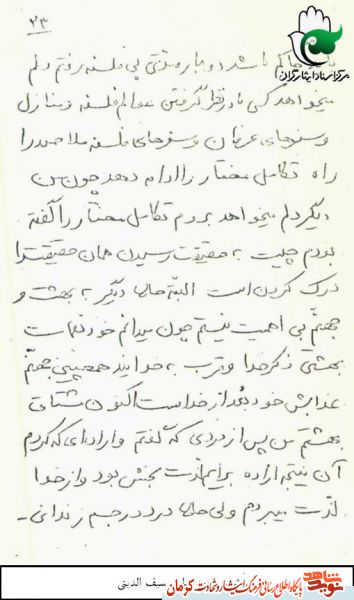 ۲۳
مرکز اسناد ایثارگران
حاکم باشد دوباره مدتی پی فلسفه رفتم دلم
میخواهد کسی با در نظر گرفتن عوالم فلسفه و منازل
و سفرهای عرفان و سفرهای فلسفه ملاصدرا
راه تکامل مختار را ادامه دهد چون من
دیگر دلم میخواهد بروم تکامل مختار را گفته
بودم چیست به حقیقت رسیدن همان حقیقت را
درک کردن است البته حالا دیگر به بهشت و
جهنم بی اهمیت نیستم چون میدانم خود نعمات
بهشتی ذکر خدا و قرب به خدایند همچنین جهنم
عذابش خود بُعد از خداست اکنون مشتاق
بهشتم من پس از دردی که گفتم و اراده‌ای که کردم
آن نتیجه اراده برایم لذت بخش بود و از خدا
لذت میبردم ولی حالا درد در جسم زندانی -
سیف الدینی
نوید شاهد
پایگاه اطلاع رسانی فرهنگ ایثار و شهادت کرمان